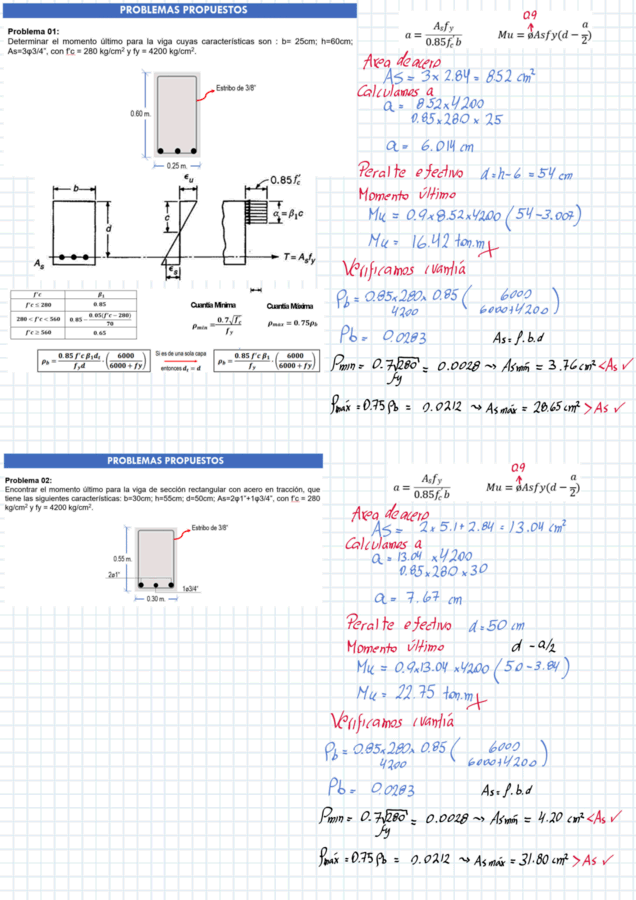 PROBLEMAS PROPUESTOS
Problema 01:
Determinar el momento último para la viga cuyas características son : b= 25cm; h=60cm;
As=3φ3/4", con f'c = 280 kg/cm² y fy = 4200 kg/cm².
Estribo de 3/8"
0.60 m.
0.25 m.
b
d
A_s
ϵ_u
c
ϵ_s
0.85f'c
a = β₁c
T = A_s f_y
f'c β₁
f'c ≤ 280 0.85
280 < f'c < 560 0.85 − 0.05(f'c − 280)/70
f'c ≥ 560 0.65
Cuantía Mínima
ρmin = 0.7√f'c / fy
Cuantía Máxima
ρmax = 0.75ρb
ρb = 0.85 f'c β₁ dt / (fy d) · (6000 / (6000 + fy))
Si es de una sola capa
entonces dt = d
ρb = 0.85 f'c β₁ / fy · (6000 / (6000 + fy))
0.9
a = A_s f_y / 0.85f'c b
Mu = øAsfy(d − a/2)
Area de acero
AS = 3 x 2.84 = 8.52 cm²
Calculamos a
a = 8.52 x 4200 / 0.85 x 280 x 25
a = 6.014 cm
Peralte efectivo d = h - 6 = 54 cm
Momento último
Mu = 0.9 x 8.52 x 4200 (54 - 3.007)
Mu = 16.42 ton.m
Verificamos cuantía
ρb = 0.85 x 280 x 0.85 / 4200 (6000 / 6000 + 4200)
ρb = 0.0283 As = ρ.b.d
ρmín = 0.7√280 / fy = 0.0028 → Asmín = 3.76 cm² < As ✓
ρmáx = 0.75 ρb = 0.0212 → Asmáx = 28.65 cm² > As ✓
PROBLEMAS PROPUESTOS
Problema 02:
Encontrar el momento último para la viga de sección rectangular con acero en tracción, que
tiene las siguientes características: b=30cm; h=55cm; d=50cm; As=2φ1"+1φ3/4", con f'c = 280
kg/cm² y fy = 4200 kg/cm².
Estribo de 3/8"
0.55 m.
2ø1"
1ø3/4"
0.30 m.
0.9
a = A_s f_y / 0.85f'c b
Mu = øAsfy(d − a/2)
Area de acero
AS = 2 x 5.1 + 2.84 = 13.04 cm²
Calculamos a
a = 13.04 x 4200 / 0.85 x 280 x 30
a = 7.67 cm
Peralte efectivo d = 50 cm
Momento último d - a/2
Mu = 0.9 x 13.04 x 4200 (50 - 3.84)
Mu = 22.75 ton.m
Verificamos cuantía
ρb = 0.85 x 280 x 0.85 / 4200 (6000 / 6000 + 4200)
ρb = 0.0283 As = ρ.b.d
ρmín = 0.7√280 / fy = 0.0028 → Asmín = 4.20 cm² < As ✓
ρmáx = 0.75 ρb = 0.0212 → Asmáx = 31.80 cm² > As ✓